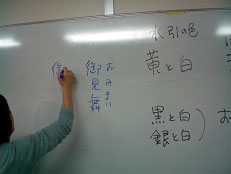 水引の色
黄と白
黒と白
銀と白
おみまい
御見舞